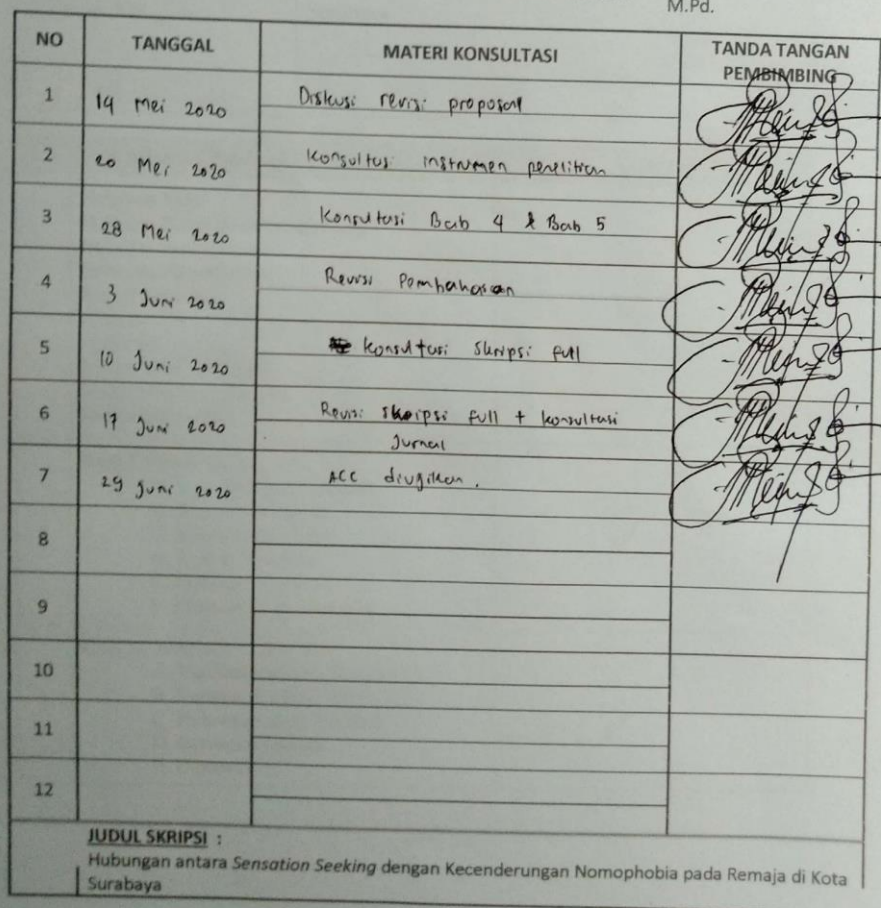 M.Pd.
NO TANGGAL MATERI KONSULTASI TANDA TANGAN PEMBIMBING
1 14 Mei 2020 Diskusi revisi proposal
2 20 Mei 2020 Konsultasi instrumen penelitian
3 28 Mei 2020 Konsultasi Bab 4 & Bab 5
4 3 Juni 2020 Revisi Pembahasan
5 10 Juni 2020 konsultasi skripsi full
6 17 Juni 2020 Revisi skripsi full + konsultasi
Jurnal
7 29 Juni 2020 ACC diujikan.
8
9
10
11
12
JUDUL SKRIPSI :
Hubungan antara Sensation Seeking dengan Kecenderungan Nomophobia pada Remaja di Kota
Surabaya